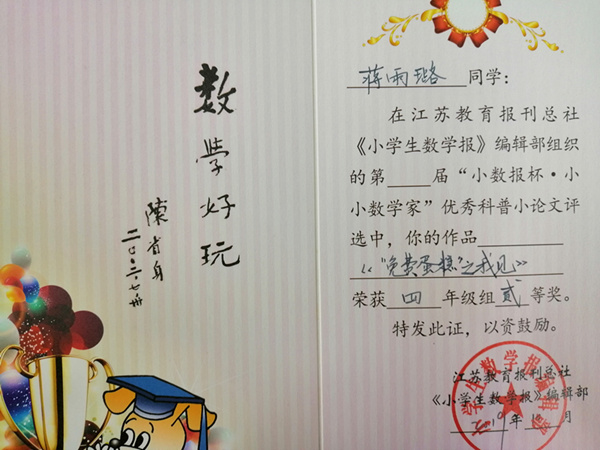 数学好玩
陳省身
蒋雨璐同学：
在江苏教育报刊总社
《小学生数学报》编辑部组织
的第____届“小数报杯·小
小数学家”优秀科普小论文评
选中，你的作品
《“免费蛋糕”之我见》
荣获四年级组贰等奖。
特发此证，以资鼓励。
江苏教育报刊总社
《小学生数学报》编辑部
年 月
小学生数学报编辑部